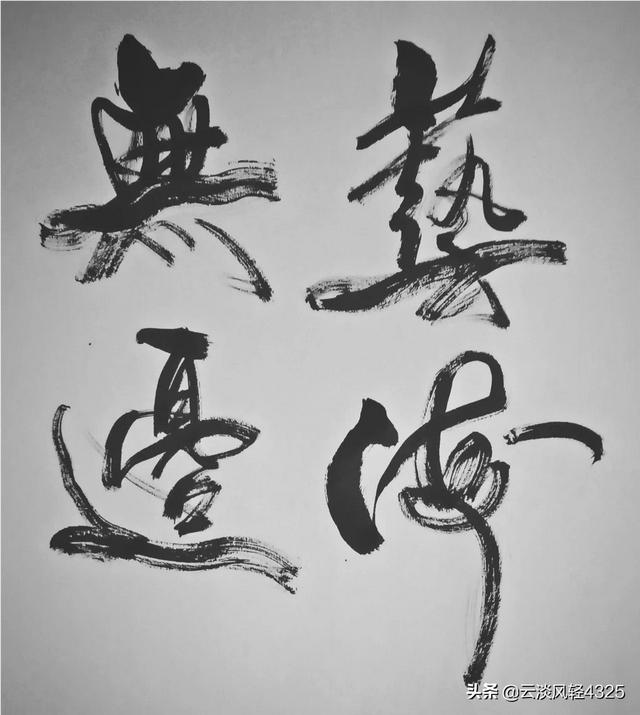 藝術
無邊
头条 @云淡风轻4325